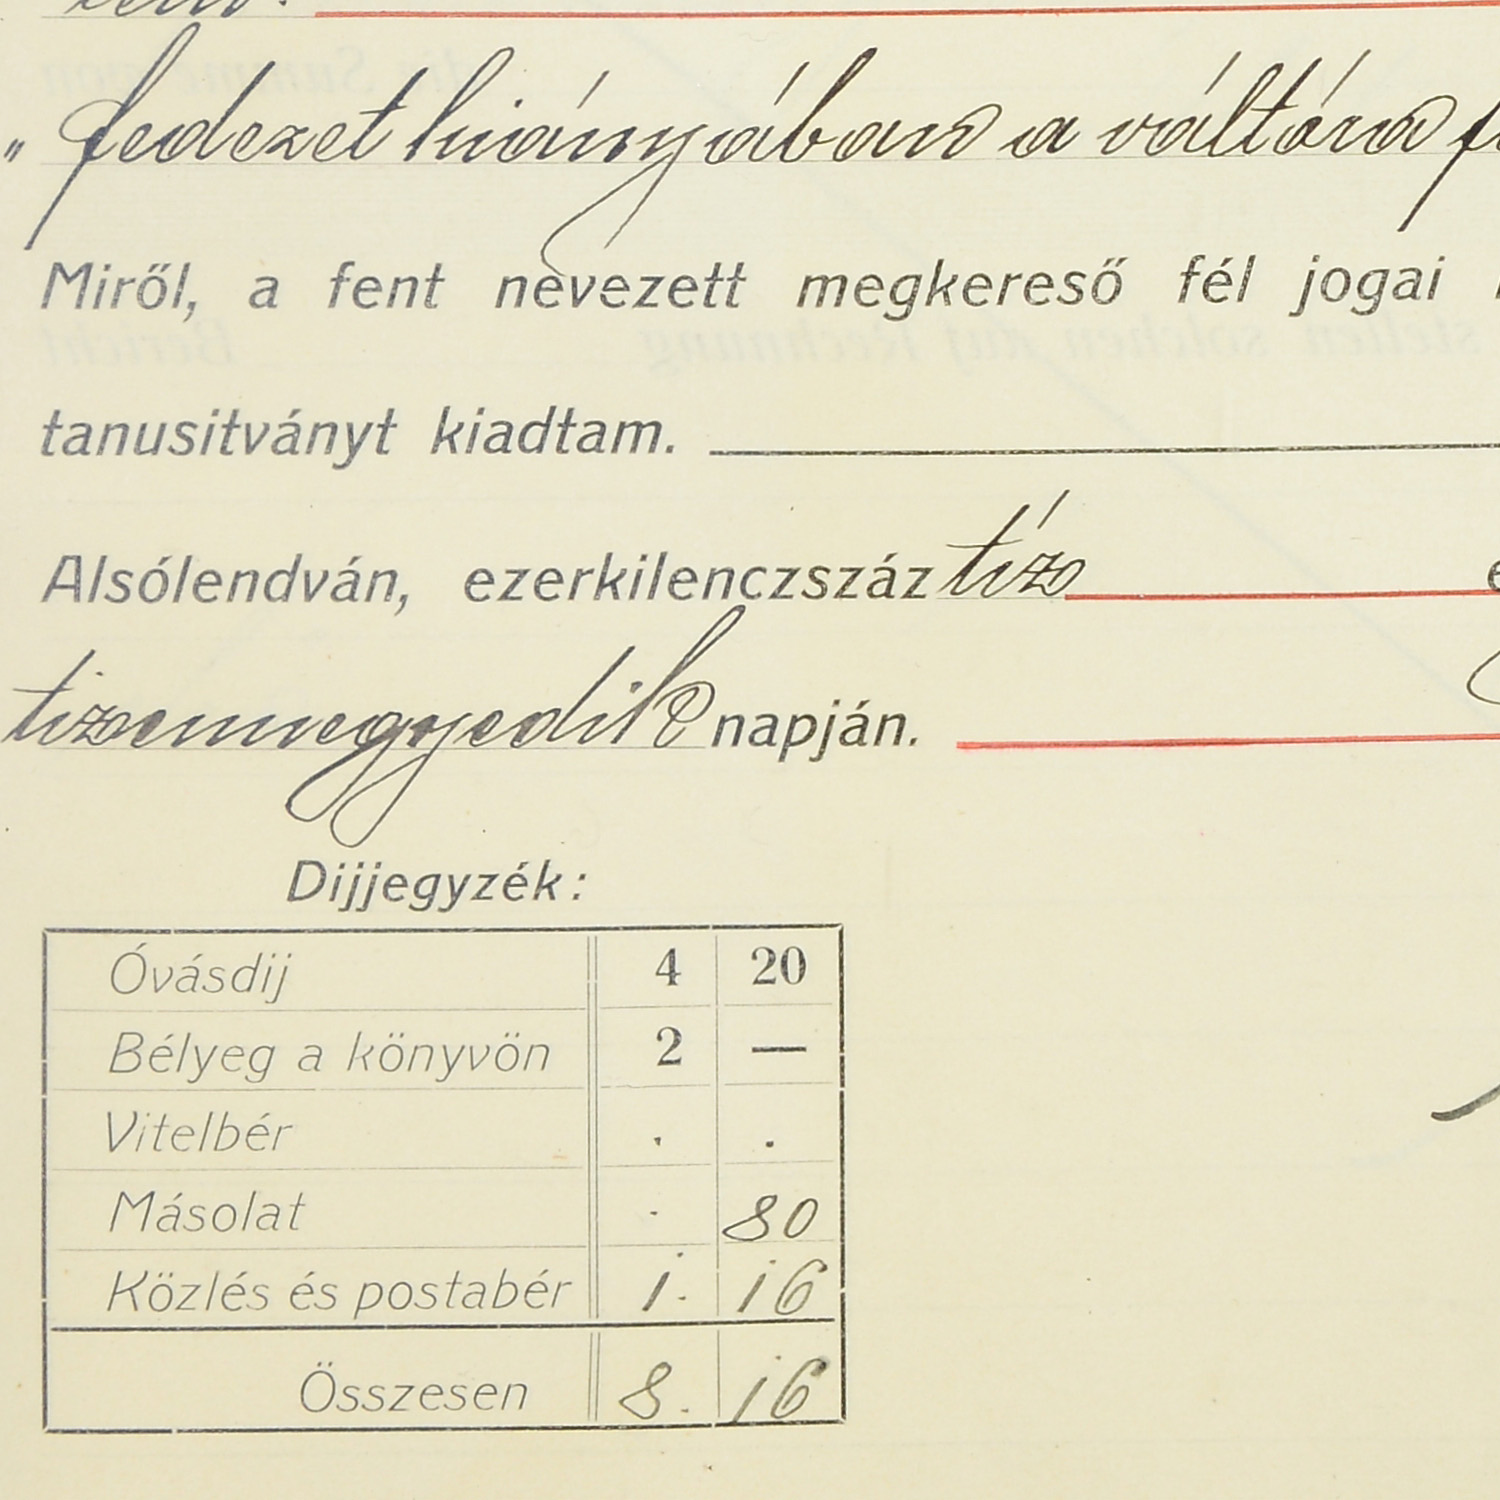 „ fedezet hiányában a váltóra
Miről, a fent nevezett megkereső fél jogai
tanusitványt kiadtam.
Alsólendván, ezerkilenczszáz tíz
tizennegyedik napján.
Dijjegyzék:
Óvásdij 4 20
Bélyeg a könyvön 2 —
Vitelbér . .
Másolat . 80
Közlés és postabér 1. 16
Összesen 8. 16